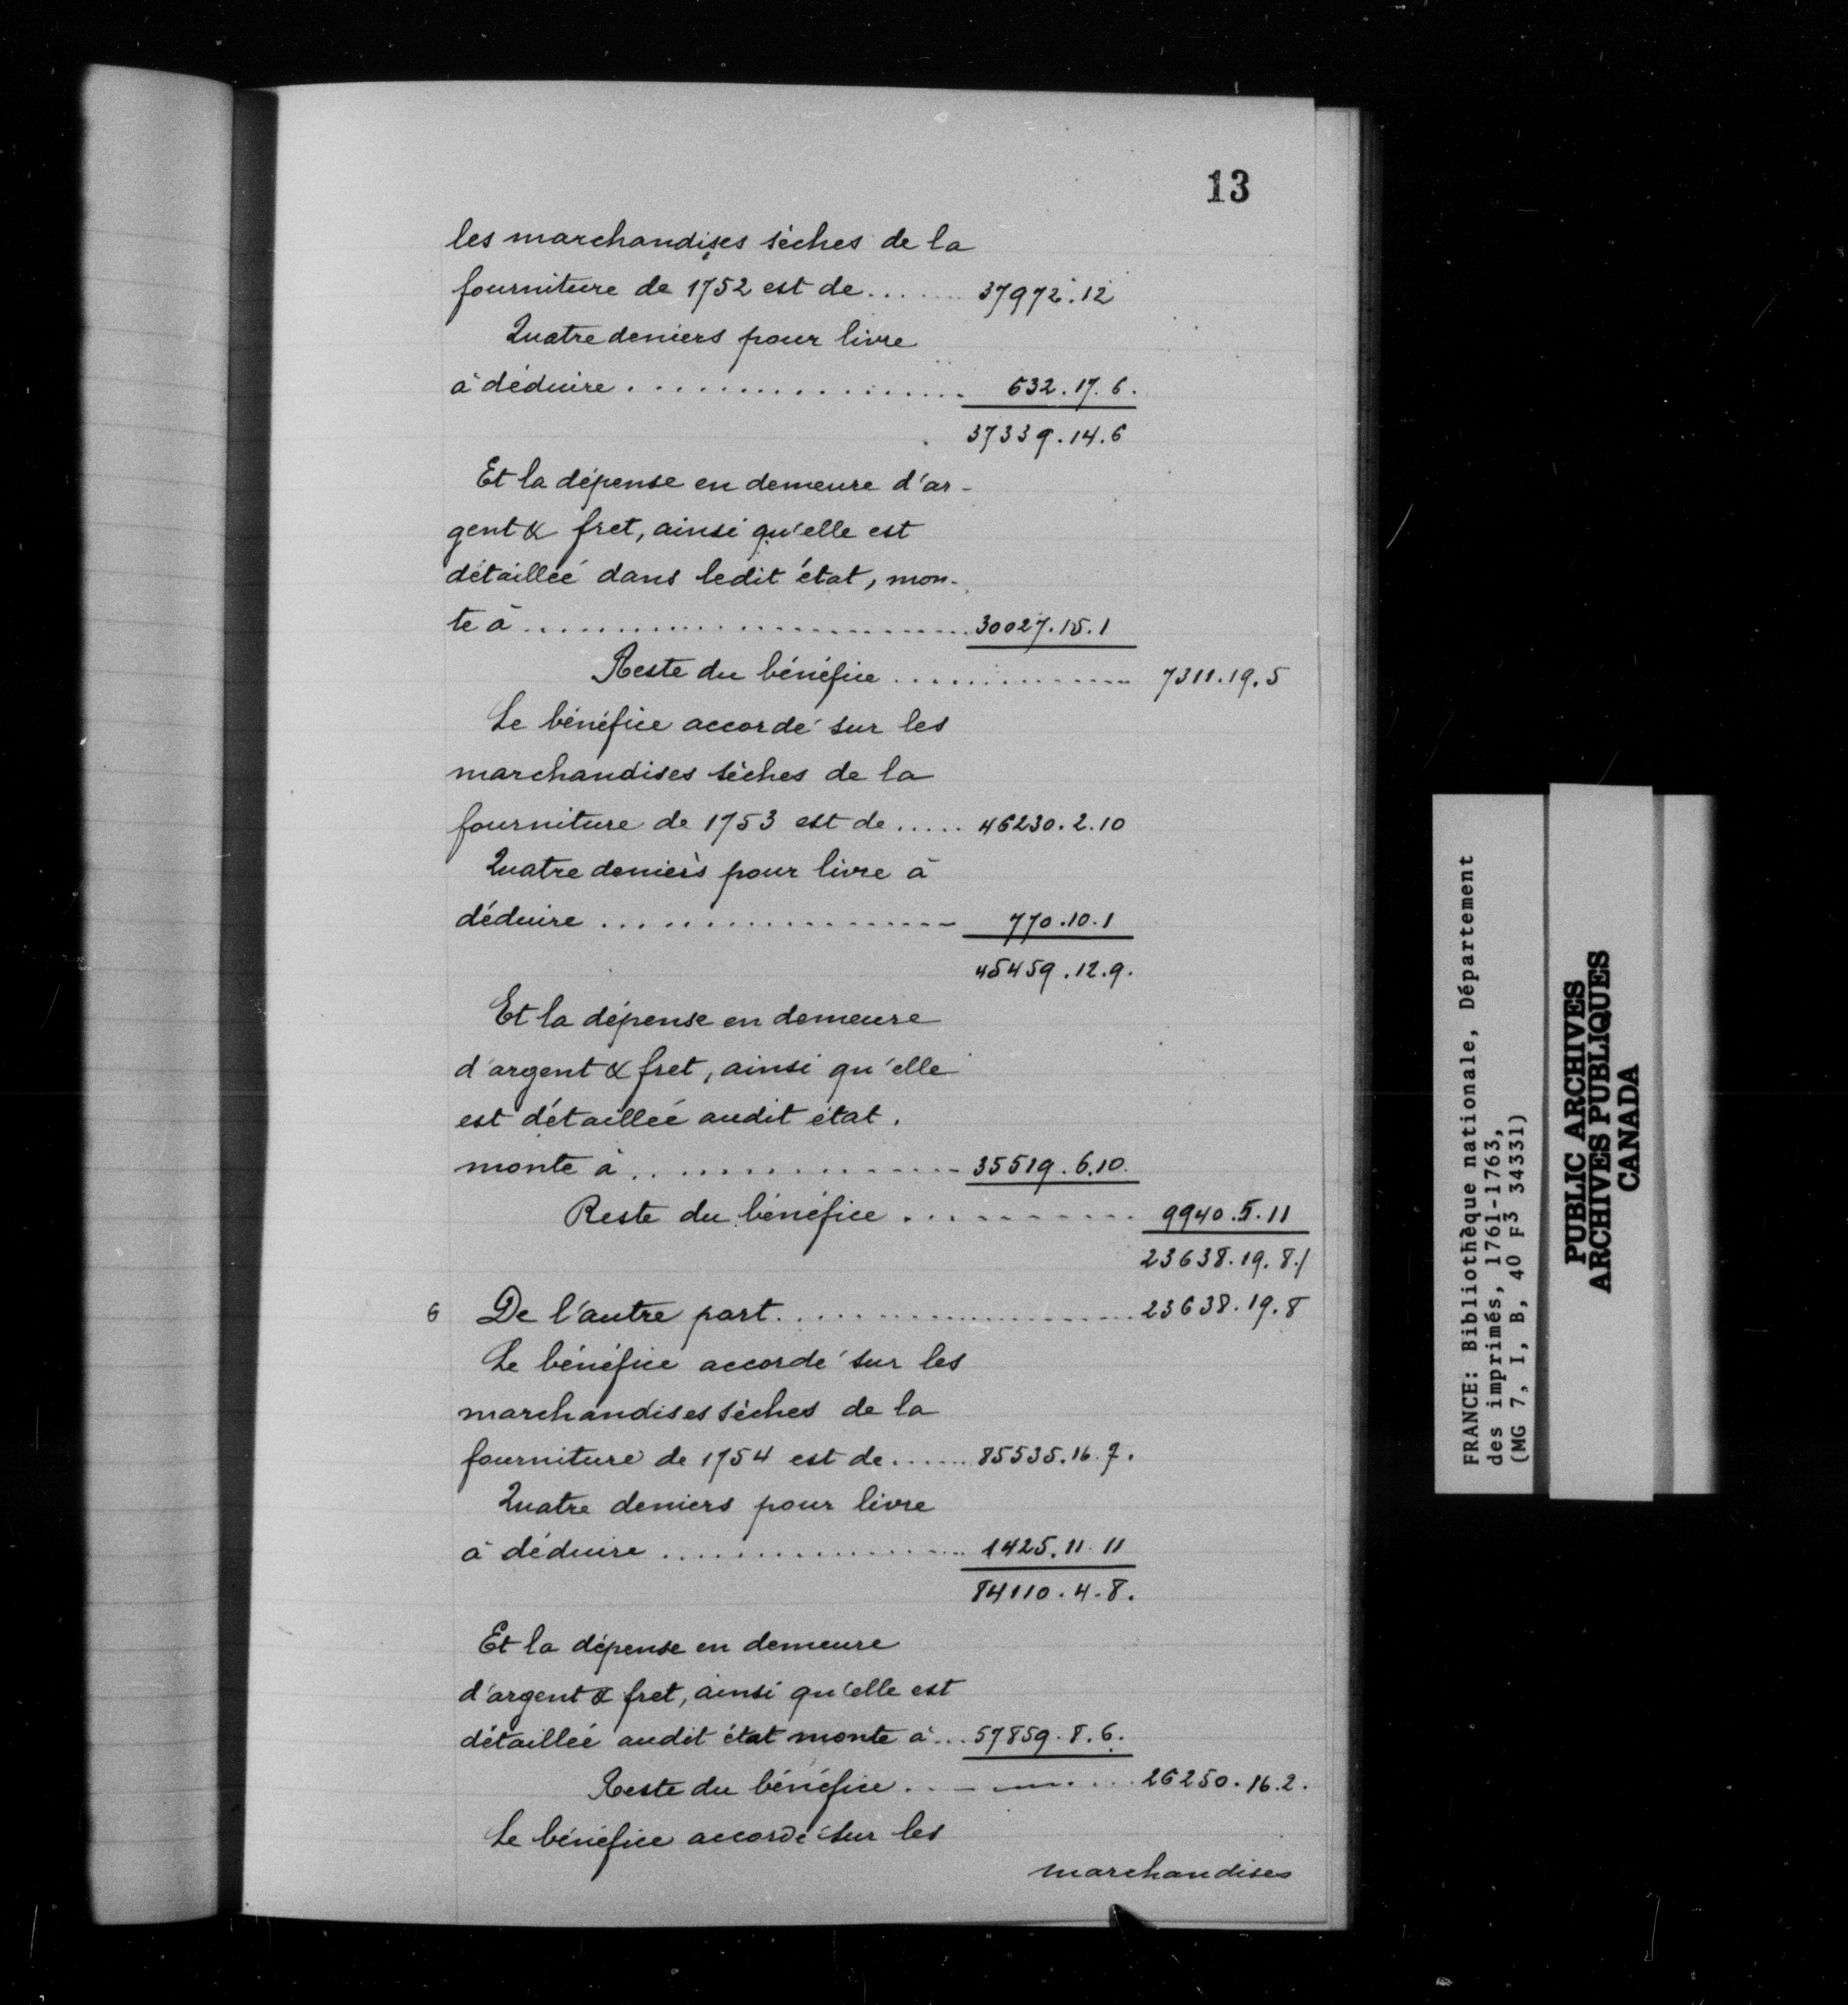 13
les marchandises sèches de la
fourniture de 1752 est de....... 37972.12
Quatre deniers pour livre
à déduire.................. 632.17.6.
37339.14.6
Et la dépense en demeure d'ar-
gent & fret, ainsi qu'elle est
détaillée dans ledit état, mon-
te à........................... 30027.15.1
Reste du bénéfice .............. 7311.19.5
Le bénéfice accordé sur les
marchandises sèches de la
fourniture de 1753 est de..... 46230.2.10
Quatre deniers pour livre à
déduire .................. 770.10.1
45459.12.9.
Et la dépense en demeure
d'argent & fret, ainsi qu'elle
est détaillée audit état.
monte à................. 35519.6.10.
Reste du bénéfice ............. 9940.5.11
23638.19.8./
6 De l'autre part..................... 23638.19.8
Le bénéfice accordé sur les
marchandises sèches de la
fourniture de 1754 est de...... 85535.16.7.
Quatre deniers pour livre
à déduire ................. 1425.11.11
84110.4.8.
Et la dépense en demeure
d'argent & fret, ainsi qu'elle est
détaillée audit état monte à... 57859.8.6.
Reste du bénéfice............. 26250.16.2.
Le bénéfice accordé sur les
marchandises
FRANCE: Bibliothèque nationale, Département
des imprimés, 1761-1763,
(MG 7, I, B, 40 F3 34331)
PUBLIC ARCHIVES
ARCHIVES PUBLIQUES
CANADA